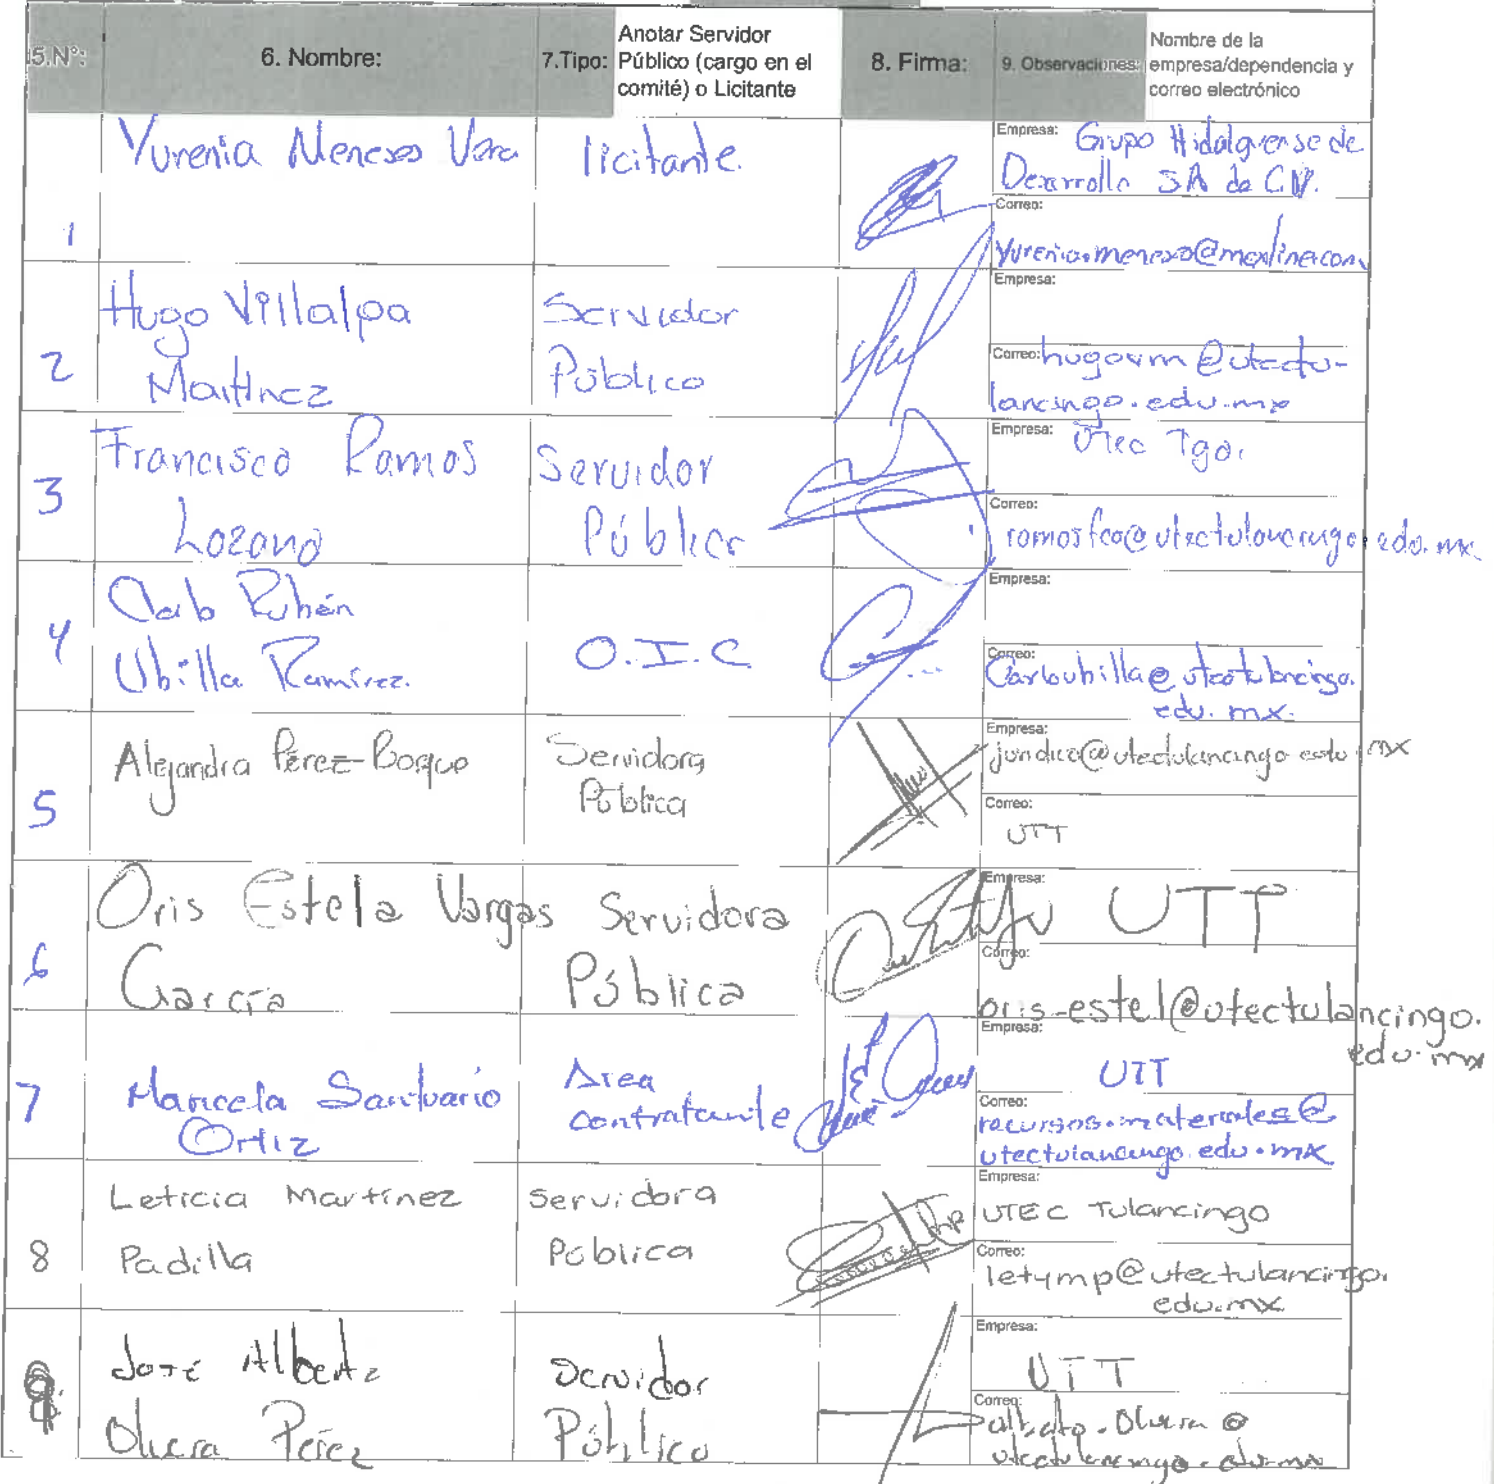 5.Nº:
6. Nombre:
7.Tipo:
Anotar Servidor
Público (cargo en el
comité) o Licitante
8. Firma:
9. Observaciones:
Nombre de la
empresa/dependencia y
correo electrónico
1
Yurenia Meneses Vera
licitante.
Empresa: Grupo Hidalguense de
Desarrollo SA de CV.
Correo:
2
Hugo Villalpa
Martínez
Servidor
Público
Empresa:
Correo: hugovm@utectu-
lancingo.edu.mx
3
Francisco Ramos
Lozano
Servidor
Público
Empresa: Utec Tgo.
Correo:
ramosfco@utectulancingo.edu.mx
4
Rubén
Ubilla Ramírez.
O.I.C
Empresa:
Correo:
Carloubilla@utectulancingo.
edu.mx.
5
Alejandra Pérez-Bosque
Servidora
Pública
Empresa:
juridico@utectulancingo.edu.mx
Correo:
UTT
6
Oris Estela Vargas
García
Servidora
Pública
Empresa: UTT
Correo:
oris-estel@utectulancingo.
edu.mx
7
Maricela Santuario
Ortiz
Area
contratante
Empresa:
UTT
Correo:
recursos.materiales@
utectulancingo.edu.mx
8
Leticia Martínez
Padilla
Servidora
Pública
Empresa:
UTEC Tulancingo
Correo:
letymp@utectulancingo.
edu.mx
9.
José Alberto
Olvera Pérez
Servidor
Público
Empresa:
UTT
Correo:
alberto.olvera@
utectulancingo.edu.mx